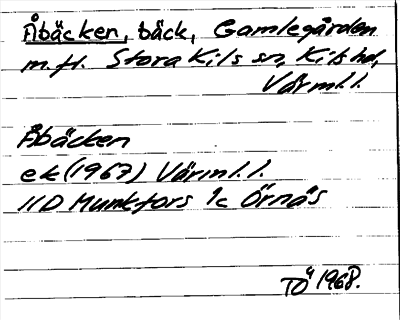 Åbäcken, bäck, Gamlegården
m.fl. Stora Kils sn, Kils hd,
Värml.l.
Åbäcken
ek (1967) Värml.l.
11D Munkfors 1c Örnäs
TÖ 1968.